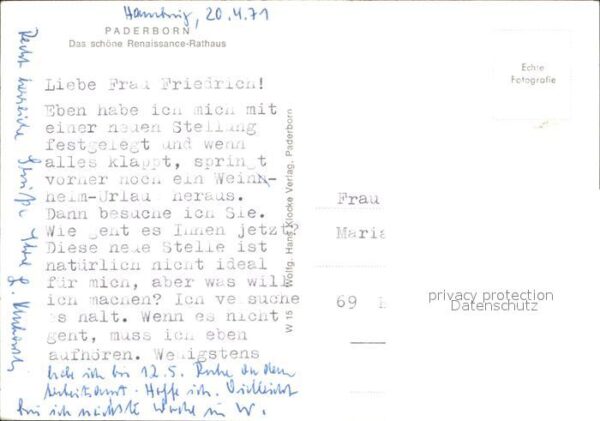 Hamburg, 20.4.71
PADERBORN
Das schöne Renaissance-Rathaus
Liebe Frau Friedrich!
Eben habe ich mich mit
einer neuen Stellung
festgelegt und wenn
alles klappt, springt
vorher noch ein Wein-
heim-Urlau heraus.
Dann besuche ich Sie.
Wie geht es Ihnen jetzt?
Diese neue Stelle ist
natürlich nicht ideal
für mich, aber was will
ich machen? Ich ve suche
es halt. Wenn es nicht
geht, muss ich eben
aufhören. Wenigstens
hab ich bis 12.5. Ruhe an dem
Arbeitsamt. Hoffe ich. Vielleicht
bin ich nächste Woche in W.
Recht herzliche Grüße Ihre G.
W 15 Wolfg. Hans Klocke Verlag, Paderborn
Echte
Fotografie
Frau
Maria
69
privacy protection
Datenschutz